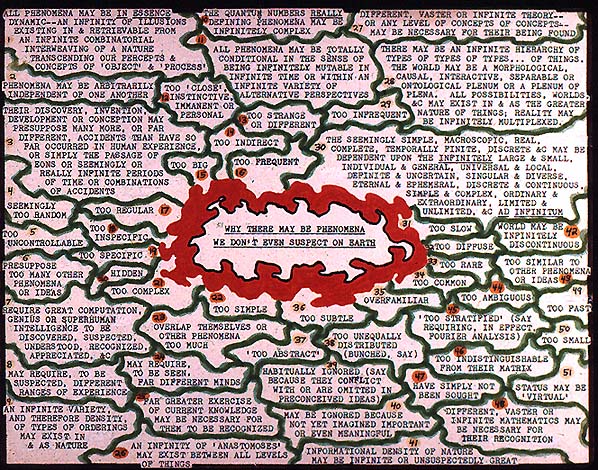 ALL PHENOMENA MAY BE IN ESSENCE
DYNAMIC--AN INFINITY OF ILLUSIONS
EXISTING IN & RETRIEVABLE FROM
AN INFINITE COMBINATORIAL
INTERWEAVING OF A NATURE
TRANSCENDING OUR PERCEPTS &
CONCEPTS OF 'OBJECT' & 'PROCESS'
PHENOMENA MAY BE ARBITRARILY
INDEPENDENT OF ONE ANOTHER
THEIR DISCOVERY, INVENTION,
DEVELOPMENT OR CONCEPTION MAY
PRESUPPOSE MANY MORE, OR FAR
DIFFERENT, ACCIDENTS THAN HAVE SO
FAR OCCURRED IN HUMAN EXPERIENCE,
OR SIMPLY THE PASSAGE OF
EONS OR SEEMINGLY OR
REALLY INFINITE PERIODS
OF TIME OR COMBINATIONS
OF ACCIDENTS
SEEMINGLY
TOO RANDOM
TOO
UNCONTROLLABLE
PRESUPPOSE
TOO MANY OTHER
PHENOMENA
OR IDEAS
REQUIRE GREAT COMPUTATION,
GENIUS OR SUPERHUMAN
INTELLIGENCE TO BE
DISCOVERED, SUSPECTED,
UNDERSTOOD, RECOGNIZED,
APPRECIATED, &C
MAY REQUIRE, TO BE
SUSPECTED, DIFFERENT
RANGES OF EXPERIENCE
AN INFINITE VARIETY,
AND THEREFORE DENSITY,
OF TYPES OF ORDERINGS
MAY EXIST IN
& AS NATURE
THE QUANTUM NUMBERS REALLY
DEFINING PHENOMENA MAY BE
INFINITELY COMPLEX
ALL PHENOMENA MAY BE TOTALLY
CONDITIONAL IN THE SENSE OF
BEING INFINITELY MUTABLE IN
INFINITE TIME OR WITHIN AN
INFINITE VARIETY OF
ALTERNATIVE PERSPECTIVES
TOO 'CLOSE',
INSTINCTIVE,
IMMANENT OR
PERSONAL
TOO STRANGE
OR DIFFERENT
TOO INFREQUENT
TOO INDIRECT
TOO BIG
TOO FREQUENT
TOO REGULAR
TOO
INSPECIFIC
TOO SPECIFIC
HIDDEN
TOO COMPLEX
TOO SIMPLE
OVERLAP THEMSELVES OR
OTHER PHENOMENA
TOO MUCH
MAY REQUIRE,
TO BE SEEN,
FAR DIFFERENT MINDS
FAR GREATER EXERCISE
OF CURRENT KNOWLEDGE
MAY BE NECESSARY FOR
THEM TO BE RECOGNIZED
AN INFINITY OF 'ANASTOMOSES'
MAY EXIST BETWEEN ALL LEVELS
OF THINGS
DIFFERENT, VASTER OR INFINITE THEORY--
OR ANY LEVEL OF CONCEPTS OF CONCEPTS--
MAY BE NECESSARY FOR THEIR BEING FOUND
THERE MAY BE AN INFINITE HIERARCHY OF
TYPES OF TYPES OF TYPES... OF THINGS.
THE WORLD MAY BE A MORPHOLOGICAL,
CAUSAL, INTERACTIVE, SEPARABLE OR
ONTOLOGICAL PLENUM OR A PLENUM OF
PLENA. ALL POSSIBILITIES, WORLDS,
&C MAY EXIST IN & AS THE GREATER
NATURE OF THINGS; REALITY MAY
BE INFINITELY MULTIPLEXED.
THE SEEMINGLY SIMPLE, MACROSCOPIC, REAL,
COMPLETE, TEMPORALLY FINITE, DISCRETE &C MAY BE
DEPENDENT UPON THE INFINITELY LARGE & SMALL,
INDIVIDUAL & GENERAL, UNIVERSAL & LOCAL,
DEFINITE & UNCERTAIN, SINGULAR & DIVERSE,
ETERNAL & EPHEMERAL, DISCRETE & CONTINUOUS,
SIMPLE & COMPLEX, ORDINARY &
EXTRAORDINARY, LIMITED &
UNLIMITED, &C AD INFINITUM
WHY THERE MAY BE PHENOMENA
WE DON'T EVEN SUSPECT ON EARTH
TOO SLOW
TOO DIFFUSE
TOO RARE
TOO COMMON
OVERFAMILIAR
TOO SUBTLE
TOO 'ABSTRACT'
TOO UNEQUALLY
DISTRIBUTED
(BUNCHED, SAY)
HABITUALLY IGNORED (SAY
BECAUSE THEY CONFLICT
WITH OR ARE OMITTED IN
PRECONCEIVED IDEAS)
MAY BE IGNORED BECAUSE
NOT YET IMAGINED IMPORTANT
OR EVEN MEANINGFUL
INFORMATIONAL DENSITY OF NATURE
MAY BE INFINITE OR UNSUSPECTEDLY GREAT
WORLD MAY BE
INFINITELY
DISCONTINUOUS
TOO SIMILAR TO
OTHER PHENOMENA
OR IDEAS
TOO AMBIGUOUS
'TOO STRATIFIED' (SAY
REQUIRING, IN EFFECT,
FOURIER ANALYSIS)
TOO INDISTINGUISHABLE
FROM THEIR MATRIX
HAVE SIMPLY NOT
BEEN SOUGHT
DIFFERENT, VASTER OR
INFINITE MATHEMATICS MAY
BE NECESSARY FOR
THEIR RECOGNITION
TOO FAST
TOO SMALL
STATUS MAY BE
'VIRTUAL'